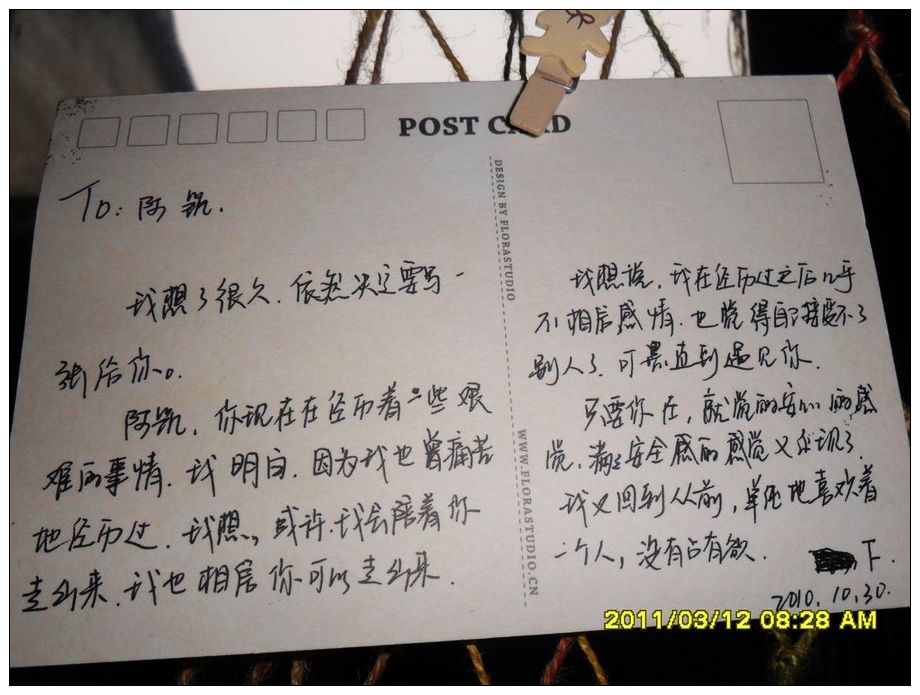 POST CARD
To: 阿凯.
我想了很久. 依然决定要写一
张给你。
阿凯. 你现在在经历着一些艰
难的事情. 我明白. 因为我也曾痛苦
地经历过. 我想, 或许. 我会陪着你
走出来. 我也相信你可以走出来.
DESIGN BY FLORASTUDIO
WWW.FLORASTUDIO.CN
我想说, 我在经历过之后几乎
不相信感情. 也觉得自己接受不了
别人了. 可是直到遇见你.
只要你在, 就觉的安心的感
觉, 满足安全感的感觉又出现了.
我又回到从前, 单纯地喜欢着
一个人, 没有占有欲.
下.
2010.10.30.
2011/03/12 08:28 AM